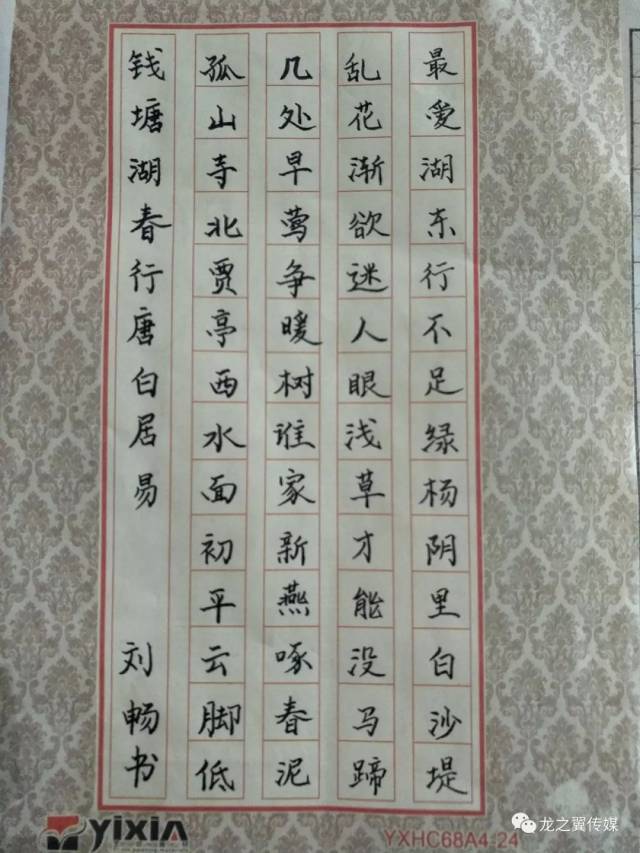 钱塘湖春行唐白居易 刘畅书
孤山寺北贾亭西水面初平云脚低
几处早莺争暖树谁家新燕啄春泥
乱花渐欲迷人眼浅草才能没马蹄
最爱湖东行不足绿杨阴里白沙堤
yixin
YXHC68A4-24
龙之翼传媒